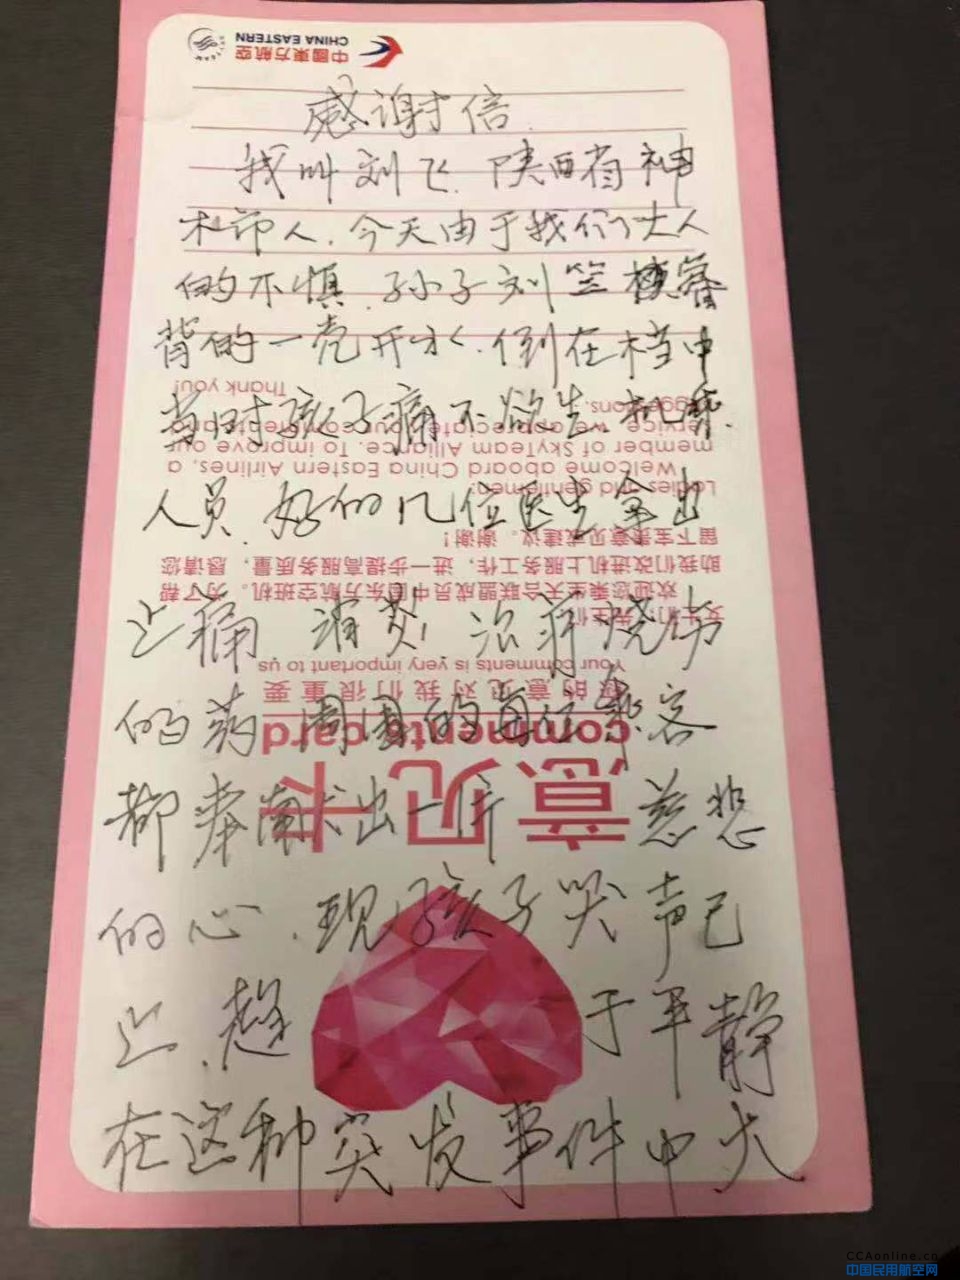 感谢信
我叫刘飞.陕西省神
木市人.今天由于我们大人
的不慎.孙子刘笠
背的一壳开水.倒在档中
当时孩子痛不欲生.机乘
人员.好的几位医生拿出
止痛 消炎 治疗烧伤
的药 周围的每位乘客
都奉献出一片 慈悲
的心.现孩子哭声已
止.趋 于平静
在这种突发事件中大
意见卡
comments card
您的意见对我们很重要
Your comments is very important to us
女士们、先生们：
欢迎您乘坐天合联盟成员中国东方航空班机。为了帮
助我们改进机上服务工作，进一步提高服务质量，恳请您
留下宝贵意见或建议。谢谢！
Ladies and gentlemen:
Welcome aboard China Eastern Airlines, a
member of SkyTeam Alliance. To improve our
service, we appreciate your comments and
suggestions.
Thank you!
中國東方航空
CHINA EASTERN
SKYTEAM
CCAonline.cn
中国民用航空网